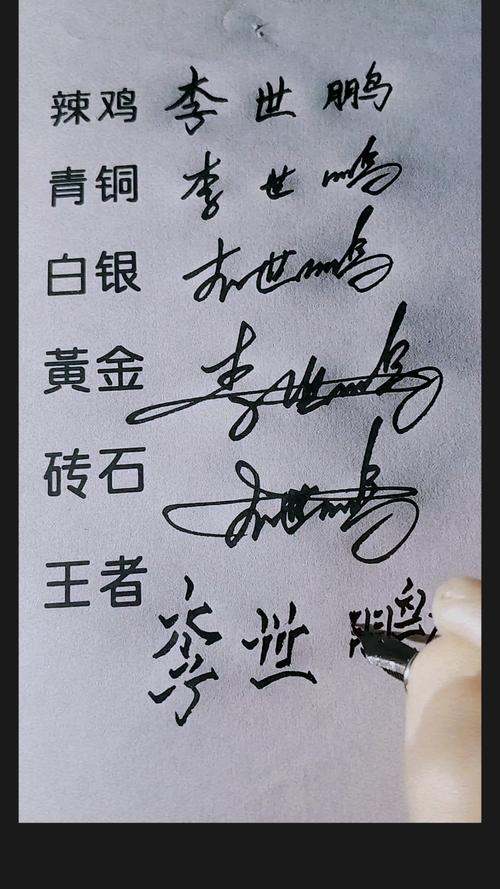 辣鸡 李世鹏
青铜 李世鹏
白银 李世鹏
黃金 李世鹏
砖石 李世鹏
王者 李世鹏